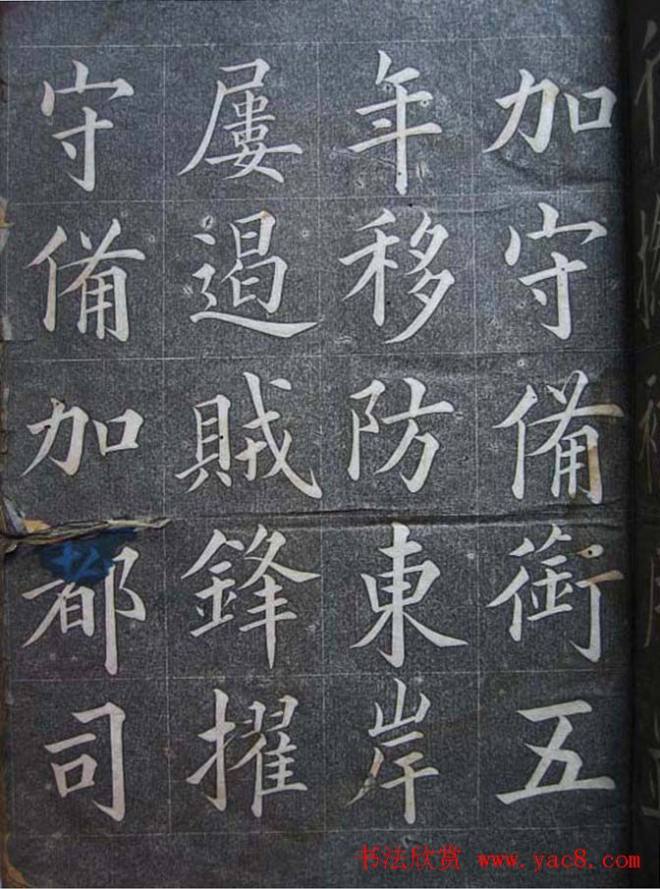 加守備銜五
年移防東岸
屢遏賊鋒擢
守備加都司
书法欣赏 www.yac8.com